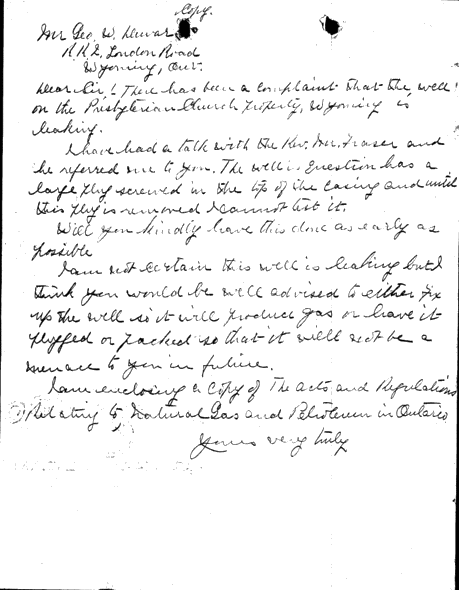 Copy.
Mr Geo. W. Dewar
R.R.2, London Road
Wyoming, Ont.
Dear Sir! There has been a complaint that the well
on the Presbyterian Church property, Wyoming is
leaking.
I have had a talk with the Rev. Mr. Fraser and
he referred me to you. The well in question has a
large plug screwed in the top of the casing and until
this plug is removed I cannot test it.
Will you kindly have this done as early as
possible
I am not certain this well is leaking but I
think you would be well advised to either fix
up the well so it will produce gas or have it
plugged or packed so that it will not be a
menace to you in future.
I am enclosing a copy of The acts, and Regulations
Relating to Natural Gas and Petroleum in Ontario
Yours very truly